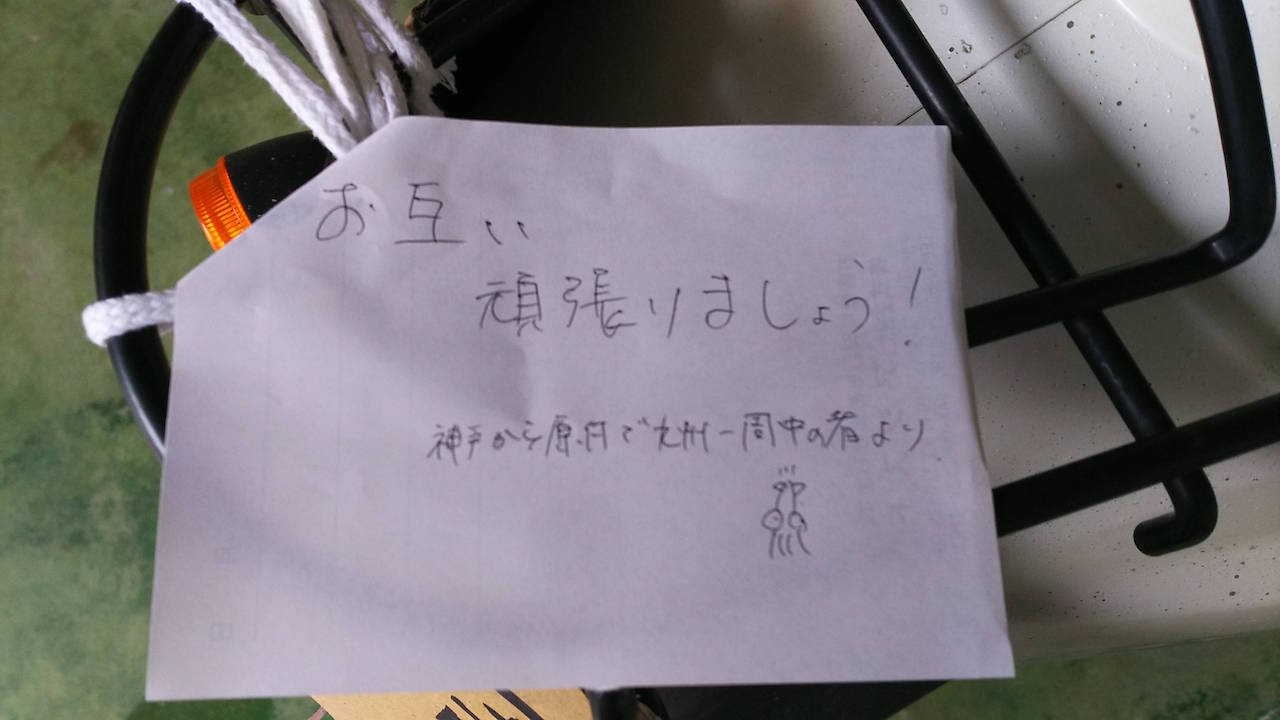 お互い
頑張りましょう!
神戸から原付で九州一周中の者より